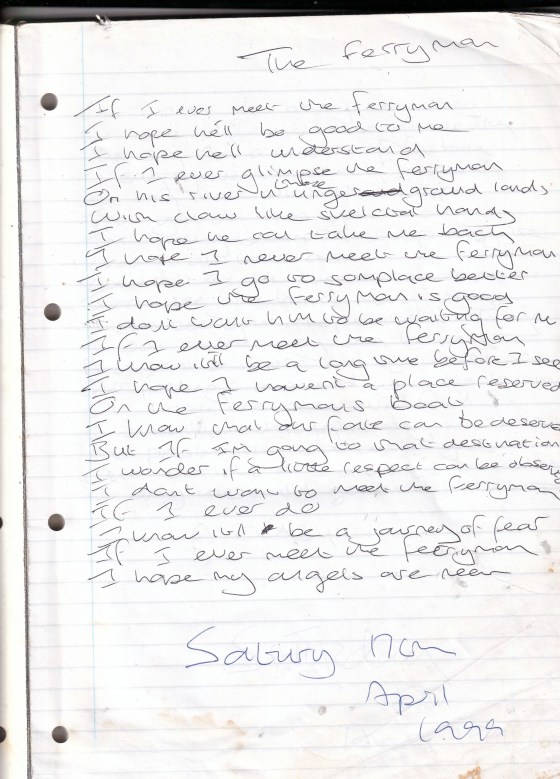 The Ferryman
If I ever meet the ferryman
I hope he'll be good to me
I hope he'll understand
If I ever glimpse the ferryman
On his river in ground lands
With claw like skeletal hands
I hope he can take me back
I hope I never meet the ferryman
I hope I go to someplace better
I hope the ferryman is good
I don't want him to be waiting for m
If I ever meet the ferryman
I know it'll be a long time before I see
I hope I haven't a place reserved
On the Ferryman's boat
I know that our fate can be deserve
But if I'm going to that destination
I wonder if a little respect can be observ
I don't want to meet the ferryman
If I ever do
I know it'll be a journey of fear
If I ever meet the ferryman
I hope my angels are near
April
1999